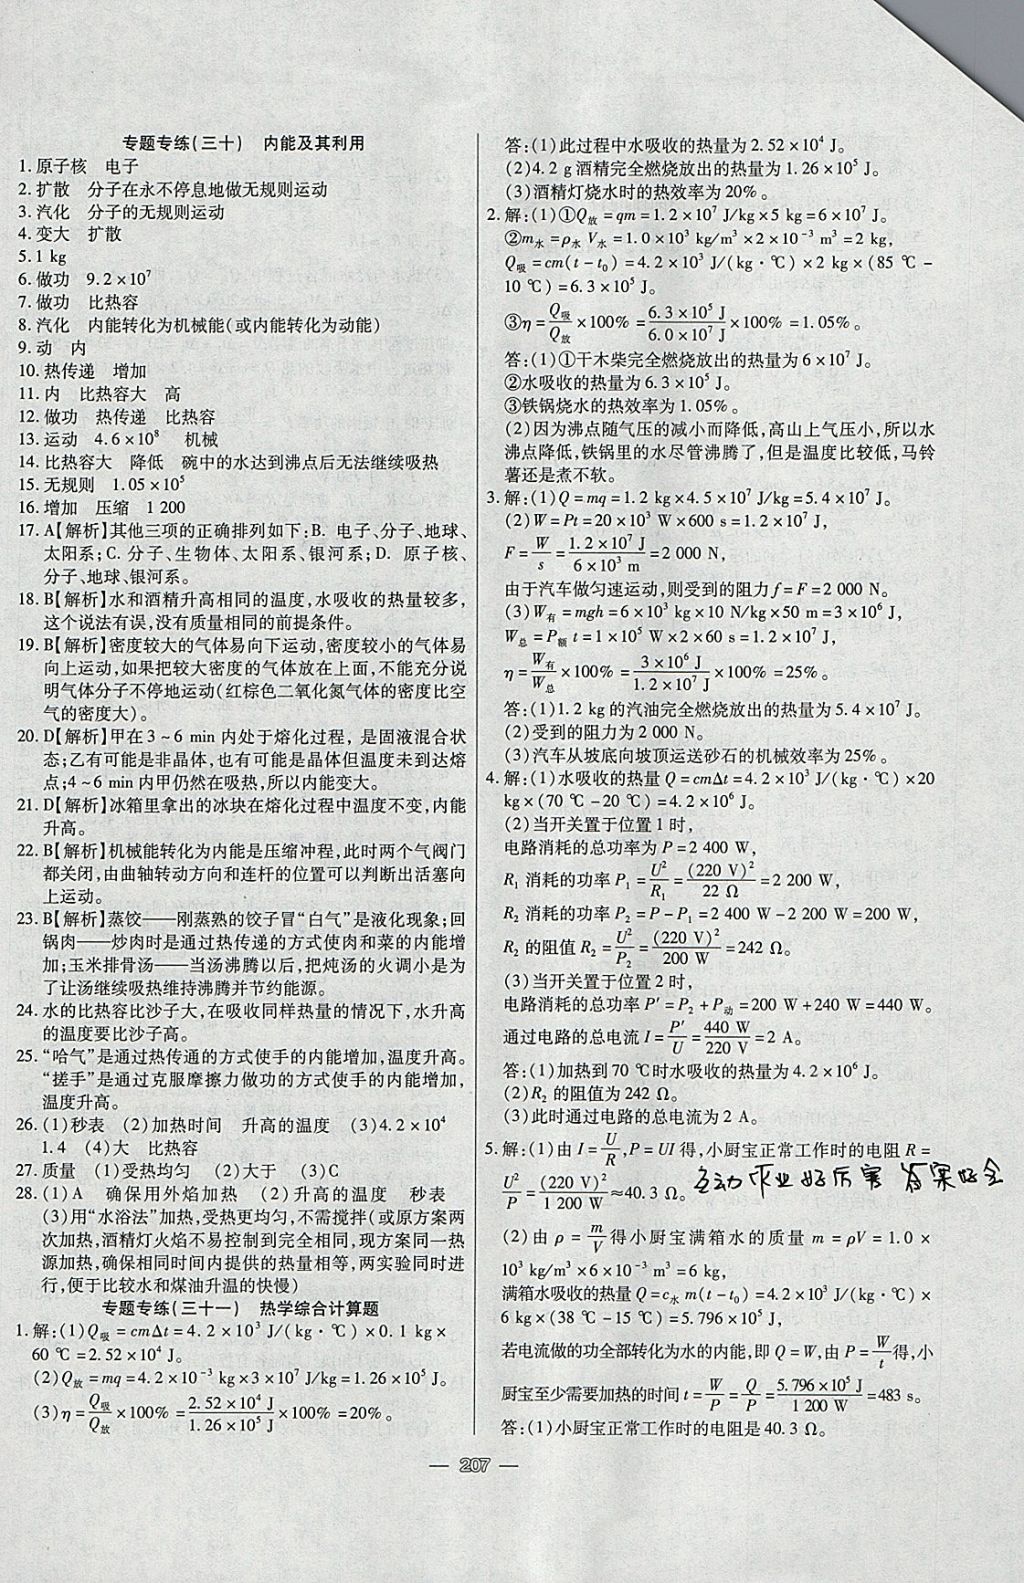 专题专练(三十)　内能及其利用
1.原子核　电子
2.扩散　分子在永不停息地做无规则运动
3.汽化　分子的无规则运动
4.变大　扩散
5.1 kg
6.做功　9.2×10⁷
7.做功　比热容
8.汽化　内能转化为机械能(或内能转化为动能)
9.动　内
10.热传递　增加
11.内　比热容大　高
12.做功　热传递　比热容
13.运动　4.6×10⁸　机械
14.比热容大　降低　碗中的水达到沸点后无法继续吸热
15.无规则　1.05×10⁵
16.增加　压缩　1 200
17.A[解析]其他三项的正确排列如下:B. 电子、分子、地球、
太阳系;C. 分子、生物体、太阳系、银河系;D. 原子核、
分子、地球、银河系。
18.B[解析]水和酒精升高相同的温度,水吸收的热量较多,
这个说法有误,没有质量相同的前提条件。
19.B[解析]密度较大的气体易向下运动,密度较小的气体易
向上运动,如果把较大密度的气体放在上面,不能充分说
明气体分子不停地运动(红棕色二氧化氮气体的密度比空
气的密度大)。
20.D[解析]甲在3~6 min内处于熔化过程, 是固液混合状
态;乙有可能是非晶体,也有可能是晶体但温度未到达熔
点;4~6 min内甲仍然在吸热,所以内能变大。
21.D[解析]冰箱里拿出的冰块在熔化过程中温度不变,内能
升高。
22.B[解析]机械能转化为内能是压缩冲程,此时两个气阀门
都关闭,由曲轴转动方向和连杆的位置可以判断出活塞向
上运动。
23.B[解析]蒸饺——刚蒸熟的饺子冒“白气”是液化现象;回
锅肉——炒肉时是通过热传递的方式使肉和菜的内能增
加;玉米排骨汤——当汤沸腾以后,把炖汤的火调小是为
了让汤继续吸热维持沸腾并节约能源。
24.水的比热容比沙子大,在吸收同样热量的情况下,水升高
的温度要比沙子高。
25.“哈气”是通过热传通的方式使手的内能增加,温度升高。
“搓手”是通过克服摩擦力做功的方式使手的内能增加,
温度升高。
26.(1)秒表　(2)加热时间　升高的温度　(3)4.2×10⁴
1.4　(4)大　比热容
27.质量　(1)受热均匀　(2)大于　(3)C
28.(1)A　确保用外焰加热　(2)升高的温度　秒表
(3)用“水浴法”加热,受热更均匀,不需搅拌(或原方案两
次加热,酒精灯火焰不易控制到完全相同,现方案同一热
源加热,确保相同时间内提供的热量相等,两实验同时进
行,便于比较水和煤油升温的快慢)
专题专练(三十一)　热学综合计算题
1.解:(1)Q吸=cmΔt=4.2×10³ J/(kg·℃)×0.1 kg×
60 ℃=2.52×10⁴ J。
(2)Q放=mq=4.2×10⁻³ kg×3×10⁷ J/kg=1.26×10⁵ J。
(3)η=Q吸/Q放×100%=2.52×10⁴ J/1.26×10⁵ J×100%=20%。
答:(1)此过程中水吸收的热量为2.52×10⁴ J。
(2)4.2 g酒精完全燃烧放出的热量为1.26×10⁵ J。
(3)酒精灯烧水时的热效率为20%。
2.解:(1)①Q放=qm=1.2×10⁷ J/kg×5 kg=6×10⁷ J。
②m水=ρ水 V水=1.0×10³ kg/m³×2×10⁻³ m³=2 kg,
Q吸=cm(t-t₀)=4.2×10³ J/(kg·℃)×2 kg×(85 ℃-
10 ℃)=6.3×10⁵ J。
③η=Q吸/Q放×100%=6.3×10⁵ J/6.0×10⁷ J×100%=1.05%。
答:(1)①干木柴完全燃烧放出的热量为6×10⁷ J。
②水吸收的热量为6.3×10⁵ J。
③铁锅烧水的热效率为1.05%。
(2)因为沸点随气压的减小而降低,高山上气压小,所以水
沸点降低,铁锅里的水尽管沸腾了,但是温度比较低,马铃
薯还是煮不软。
3.解:(1)Q=mq=1.2 kg×4.5×10⁷ J/kg=5.4×10⁷ J。
(2)W=Pt=20×10³ W×600 s=1.2×10⁷ J,
F=W/s=1.2×10⁷ J/6×10³ m=2 000 N,
由于汽车做匀速运动,则受到的阻力f=F=2 000 N。
(3)W有=mgh=6×10³ kg×10 N/kg×50 m=3×10⁶ J,
W总=P额 t=1×10⁵ W×2×60 s=1.2×10⁷ J,
η=W有/W总×100%=3×10⁶ J/1.2×10⁷ J×100%=25%。
答:(1)1.2 kg的汽油完全燃烧放出的热量为5.4×10⁷ J。
(2)受到的阻力为2 000 N。
(3)汽车从坡底向坡顶运送砂石的机械效率为25%。
4.解:(1)水吸收的热量Q=cmΔt=4.2×10³ J/(kg·℃)×20
kg×(70 ℃-20 ℃)=4.2×10⁶ J。
(2)当开关置于位置1时,
电路消耗的总功率为P=2 400 W,
R₁ 消耗的功率P₁=U²/R₁=(220 V)²/22 Ω=2 200 W,
R₂ 消耗的功率P₂=P-P₁=2 400 W-2 200 W=200 W,
R₂ 的阻值R₂=U²/P₂=(220 V)²/200 W=242 Ω。
(3)当开关置于位置2时,
电路消耗的总功率为P′=P₂+P动=200 W+240 W=440 W。
通过电路的总电流I=P′/U=440 W/220 V=2 A。
答:(1)加热到70 ℃时水吸收的热量为4.2×10⁶ J。
(2)R₂ 的阻值为242 Ω。
(3)此时通过电路的总电流为2 A。
5.解:(1)由I=U/R,P=UI得,小厨宝正常工作时的电阻R=
U²/P=(220 V)²/1 200 W≈40.3 Ω。
作业好厉害 答案好全
(2)由ρ=m/V得小厨宝满箱水的质量m=ρV=1.0×
10³ kg/m³×6×10⁻³ m³=6 kg,
满箱水吸收的热量Q=c水 m(t-t₀)=4.2×10³ J/(kg·℃)×
6 kg×(38 ℃-15 ℃)=5.796×10⁵ J,
若电流做的功全部转化为水的内能,即Q=W,由P=W/t得,小
厨宝至少需要加热的时间t=W/P=Q/P=5.796×10⁵ J/1 200 W=483 s。
答:(1)小厨宝正常工作时的电阻是40.3 Ω。
— 207 —